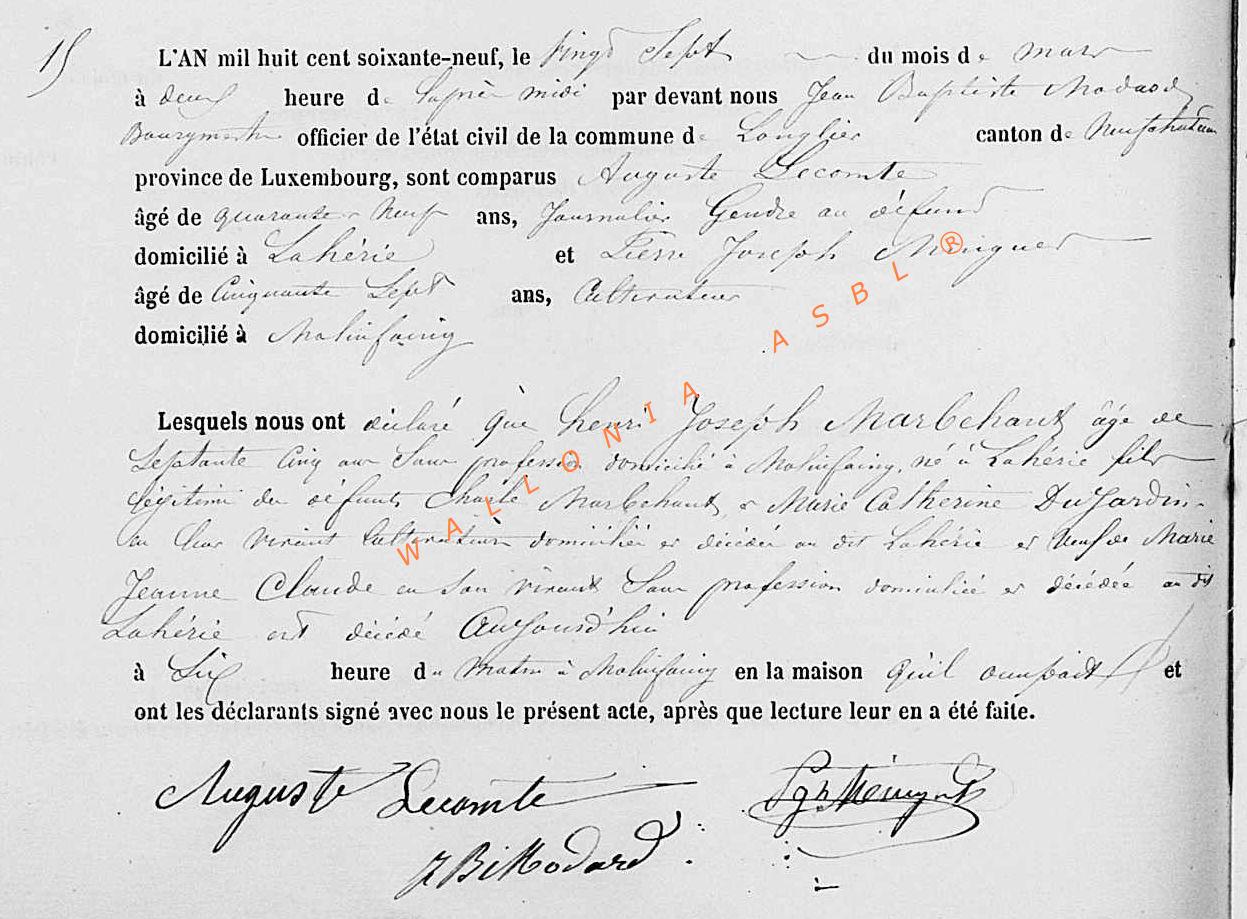 15
L'AN mil huit cent soixante-neuf, le vingt Sept du mois de mars
à deux heure de l'après midi par devant nous Jean Baptiste Modard
Bourgmestre officier de l'état civil de la commune de Longlier canton de Neufchateau
province de Luxembourg, sont comparus Auguste Lecomte
âgé de quarante Neuf ans, Journalier Gendre au défunt
domicilié à Lahérie et Pierre Joseph
âgé de Cinquante Sept ans, Cultivateur
domicilié à Molinfaing
Lesquels nous ont déclaré que henri Joseph Marbehant âgé de
Septante Cinq ans Sans profession domicilié à Molinfaing, né à Lahérie fils
légitime des défunts Charle Marbehant & Marie Catherine DuJardin
en leur vivant Cultivateurs domiciliés et décédés au dit Lahérie et Veuf de Marie
Jeanne Claude en Son vivant Sans profession domiciliée et décédée au dit
Lahérie est décédé Aujourd'hui
à Six heure du matin à Molinfaing en la maison qu'il occupait et
ont les déclarants signé avec nous le présent acte, après que lecture leur en a été faite.
Auguste Lecomte
J B Modard
WALLONIA ASBL ®